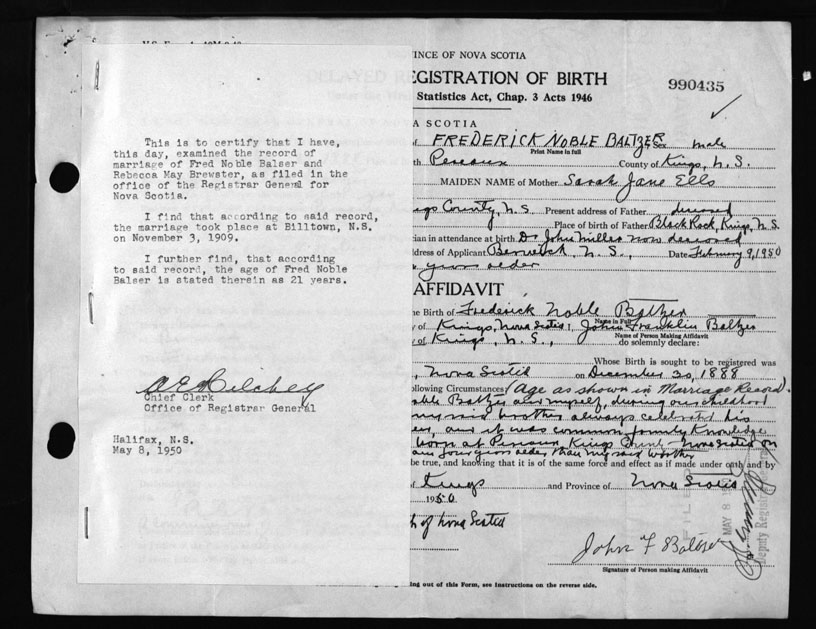 This is to certify that I have,
this day, examined the record of
marriage of Fred Noble Balser and
Rebecca May Brewster, as filed in the
office of the Registrar General for
Nova Scotia.
I find that according to said record,
the marriage took place at Billtown, N.S.
on November 3, 1909.
I further find, that according
to said record, the age of Fred Noble
Balser is stated therein as 21 years.
Chief Clerk
Office of Registrar General
Halifax, N.S.
May 8, 1950
INCE OF NOVA SCOTIA
DELAYED REGISTRATION OF BIRTH
990435
Statistics Act, Chap. 3 Acts 1946
A SCOTIA
FREDERICK NOBLE BALTZER Sex male
Print Name in full
Pereaux County of Kings, N.S.
MAIDEN NAME of Mother Sarah Jane Ells
ngs County, N.S. Present address of Father deceased
Place of birth of Father Black Rock, Kings, N.S.
cian in attendance at birth Dr John Miller now deceased
dress of Applicant Berwick, N.S., Date February 9, 1950
years older
AFFIDAVIT
e Birth of Frederick Noble Baltzer
y of Kings, Nova Scotia I, John Franklin Baltzer
Name in Full
Name of Person Making Affidavit
y of Kings, N.S., do solemnly declare:
Whose Birth is sought to be registered was
, Nova Scotia on December 20, 1888
ollowing Circumstances (Age as shown in Marriage Record).
oble Baltzer and myself, during our childhood
my said brother always celebrated his
and it was common family knowledge
born at Pereaux Kings County Nova Scotia on
am four years older than my said brother
be true, and knowing that it is of the same force and effect as if made under oath and by
Kings and Province of Nova Scotia
1950
of Nova Scotia
MAY 8 1950
Deputy Registrar General
John F Baltzer
Signature of Person making Affidavit
ing out of this Form, see Instructions on the reverse side.